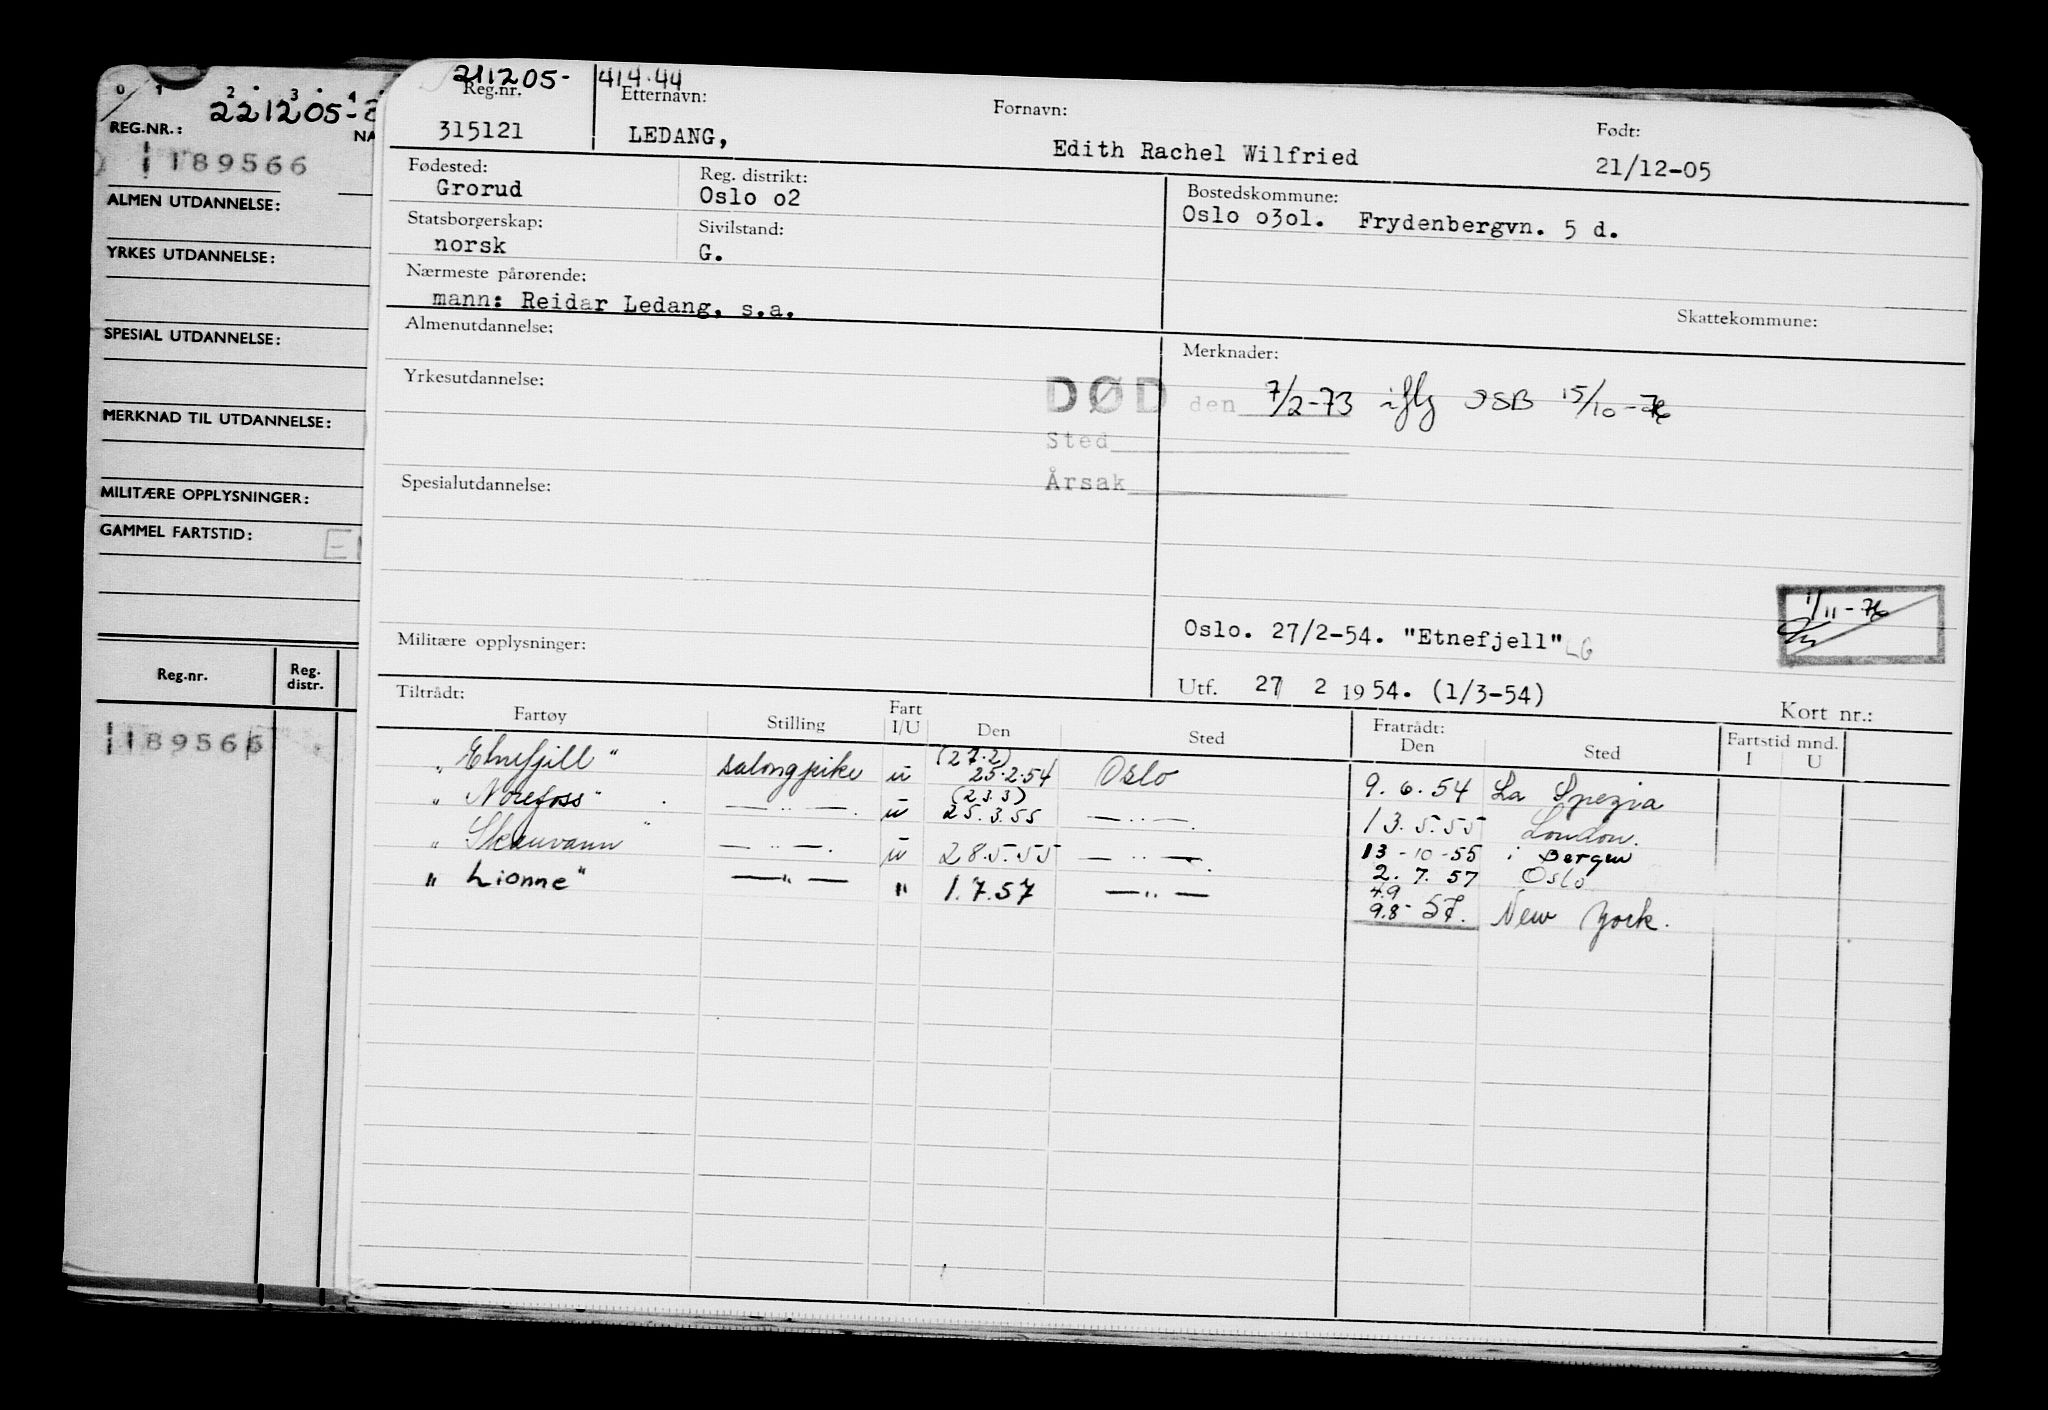 0 1 2 3 4
221205-
REG.NR.:
NA
189566
ALMEN UTDANNELSE:
YRKES UTDANNELSE:
SPESIAL UTDANNELSE:
MERKNAD TIL UTDANNELSE:
MILITÆRE OPPLYSNINGER:
GAMMEL FARTSTID:
Reg.nr. Reg. distr.
189566
211205- 414.44
Reg.nr. Etternavn: Fornavn: Født:
315121 LEDANG, Edith Rachel Wilfried 21/12-05
Fødested: Reg. distrikt: Bostedskommune:
Grorud Oslo o2 Oslo o3o1. Frydenbergvn. 5 d.
Statsborgerskap: Sivilstand:
norsk G.
Nærmeste pårørende:
mann: Reidar Ledang, s.a.
Skattekommune:
Almenutdannelse: Merknader:
Yrkesutdannelse:
DØD den 7/2-73 iflg DSB 15/10-76
Sted
Årsak
Spesialutdannelse:
1/11-76
Oslo. 27/2-54. "Etnefjell" LG
Militære opplysninger:
Utf. 27 2 1954. (1/3-54)
Kort nr.:
Tiltrådt: Fratrådt:
Fartøy Stilling Fart I/U Den Sted Den Sted Fartstid mnd. I U
"Etnefjell" salongpike u (27.2) 25.2.54 Oslo 9.6.54 La Spezia
"Norefoss" —"—. u (23.3) 25.3.55 —"—. 13.5.55 London.
"Skauvann" —"—. u 28.5.55 —"—. 13-10-55 i Bergen
2.7.57 Oslo
"Lionne" —"— " 1.7.57 —"— 4.9
9.8-57. New York.